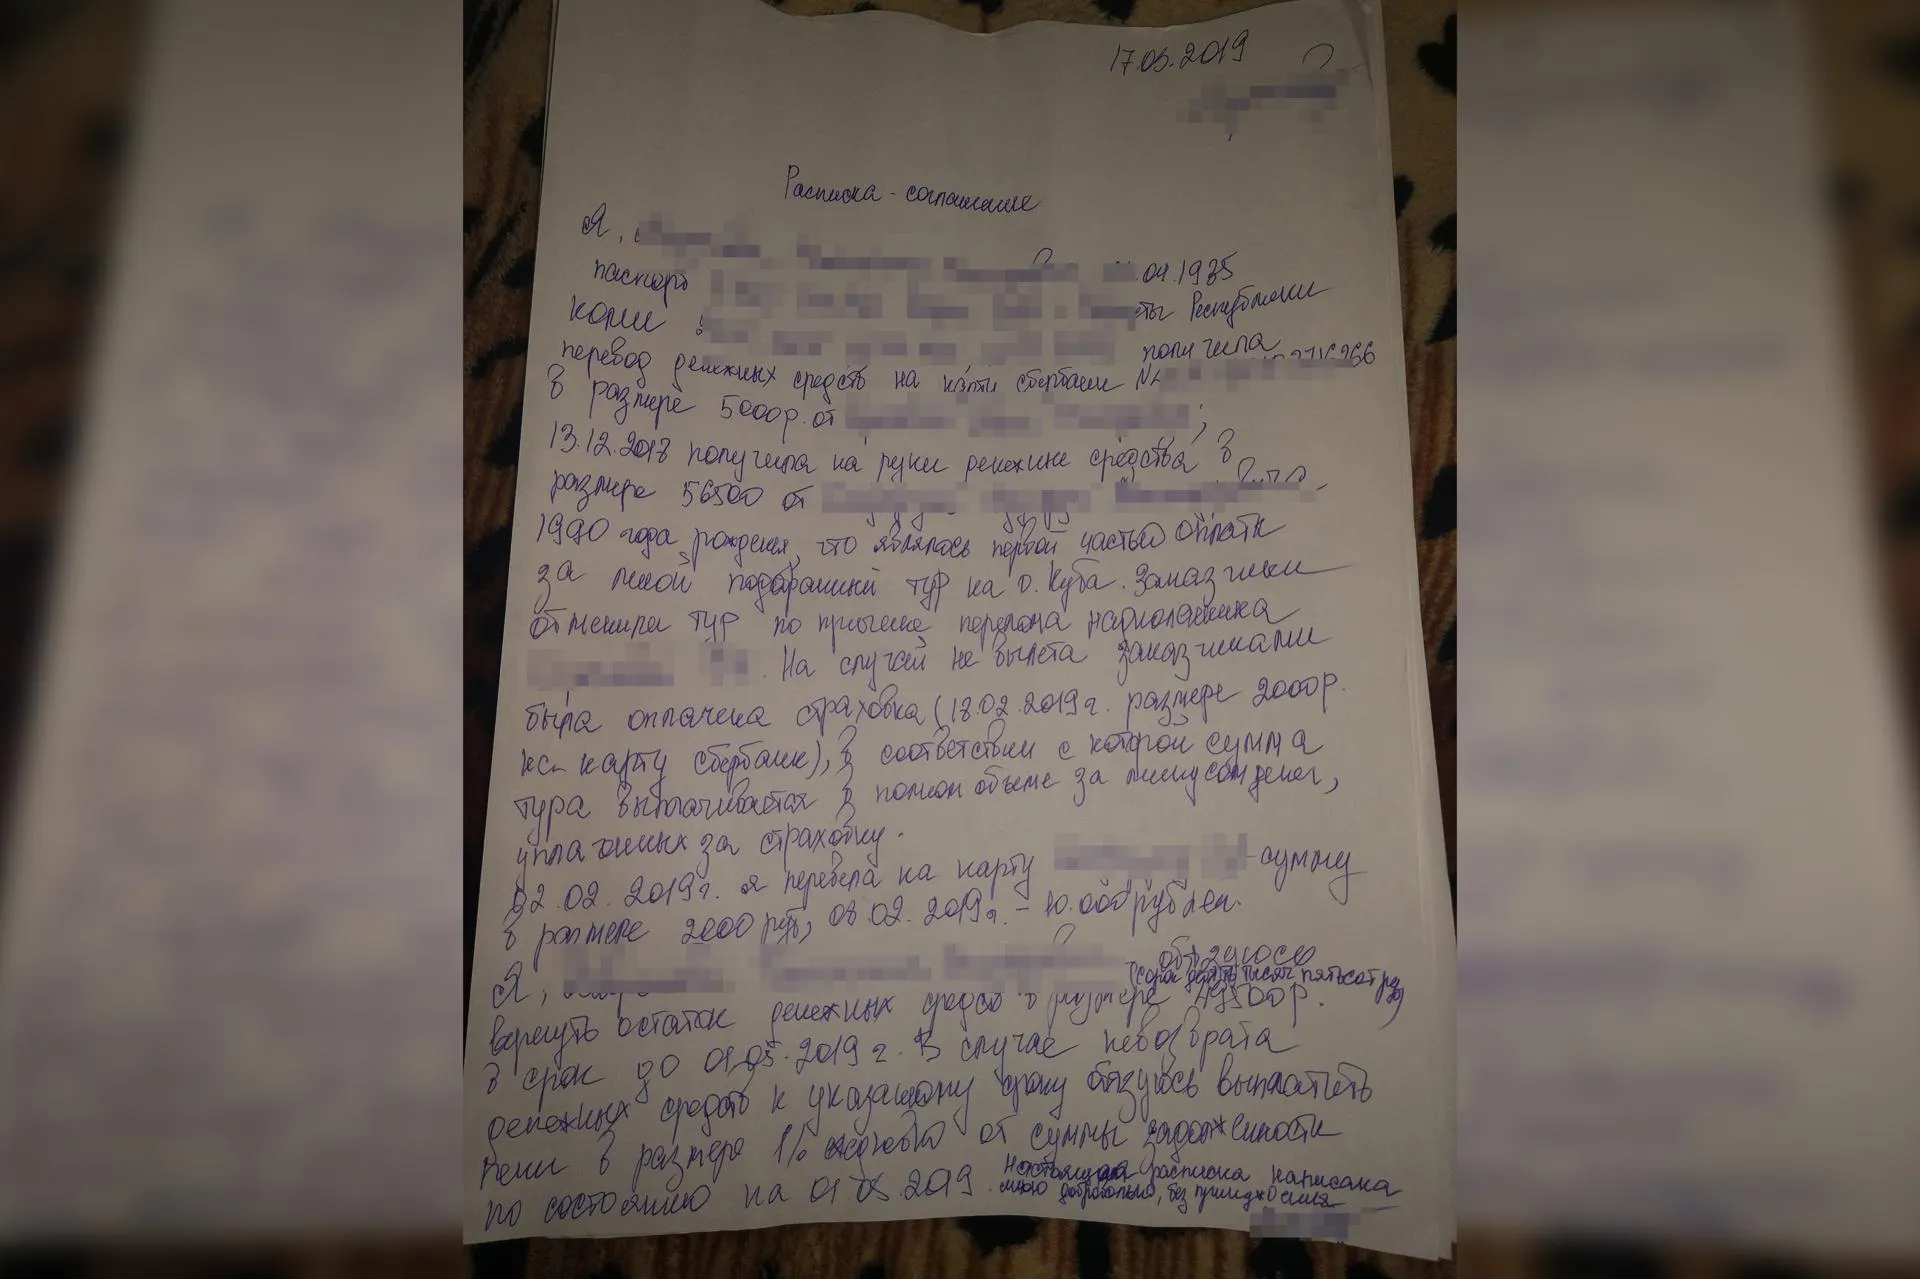 17.03.2019
Расписка-соглашение
Я,
04.1985
паспорт
ты Республики
Коми
получила
перевод денежных средств на карти сбербанк №
в размере 5000р. от
13.12.2018 получила на руки денежные средства в
размере 56500 от
1990 года рождения, что являлось первой частью оплаты
за мной подобранный тур на о. Куба. Заказчики
отменили тур по причине перелома надколенника
. На случай не вылета заказчиками
была оплачена страховка (18.02.2019г. размере 2000р.
на карту сбербанк), в соответствии с которой сумма
тура выплачивается в полном объеме за минусом денег,
уплаченных за страховку.
02.02.2019г. я перевела на карту сумму
в размере 2000 руб, 08.02.2019г. - 10.000 рублей.
Я, обязуюсь
(сорок девять тысяч пятьсот руб)
вернуть остаток денежных средств в размере 49500р.
в срок до 01.05.2019г. В случае невозврата
денежных средств к указанному сроку обязуюсь выплатить
пени в размере 1% от суммы задолженности
по состоянию на 01.05.2019. Настоящая расписка написана
мною добровольно, без принуждения